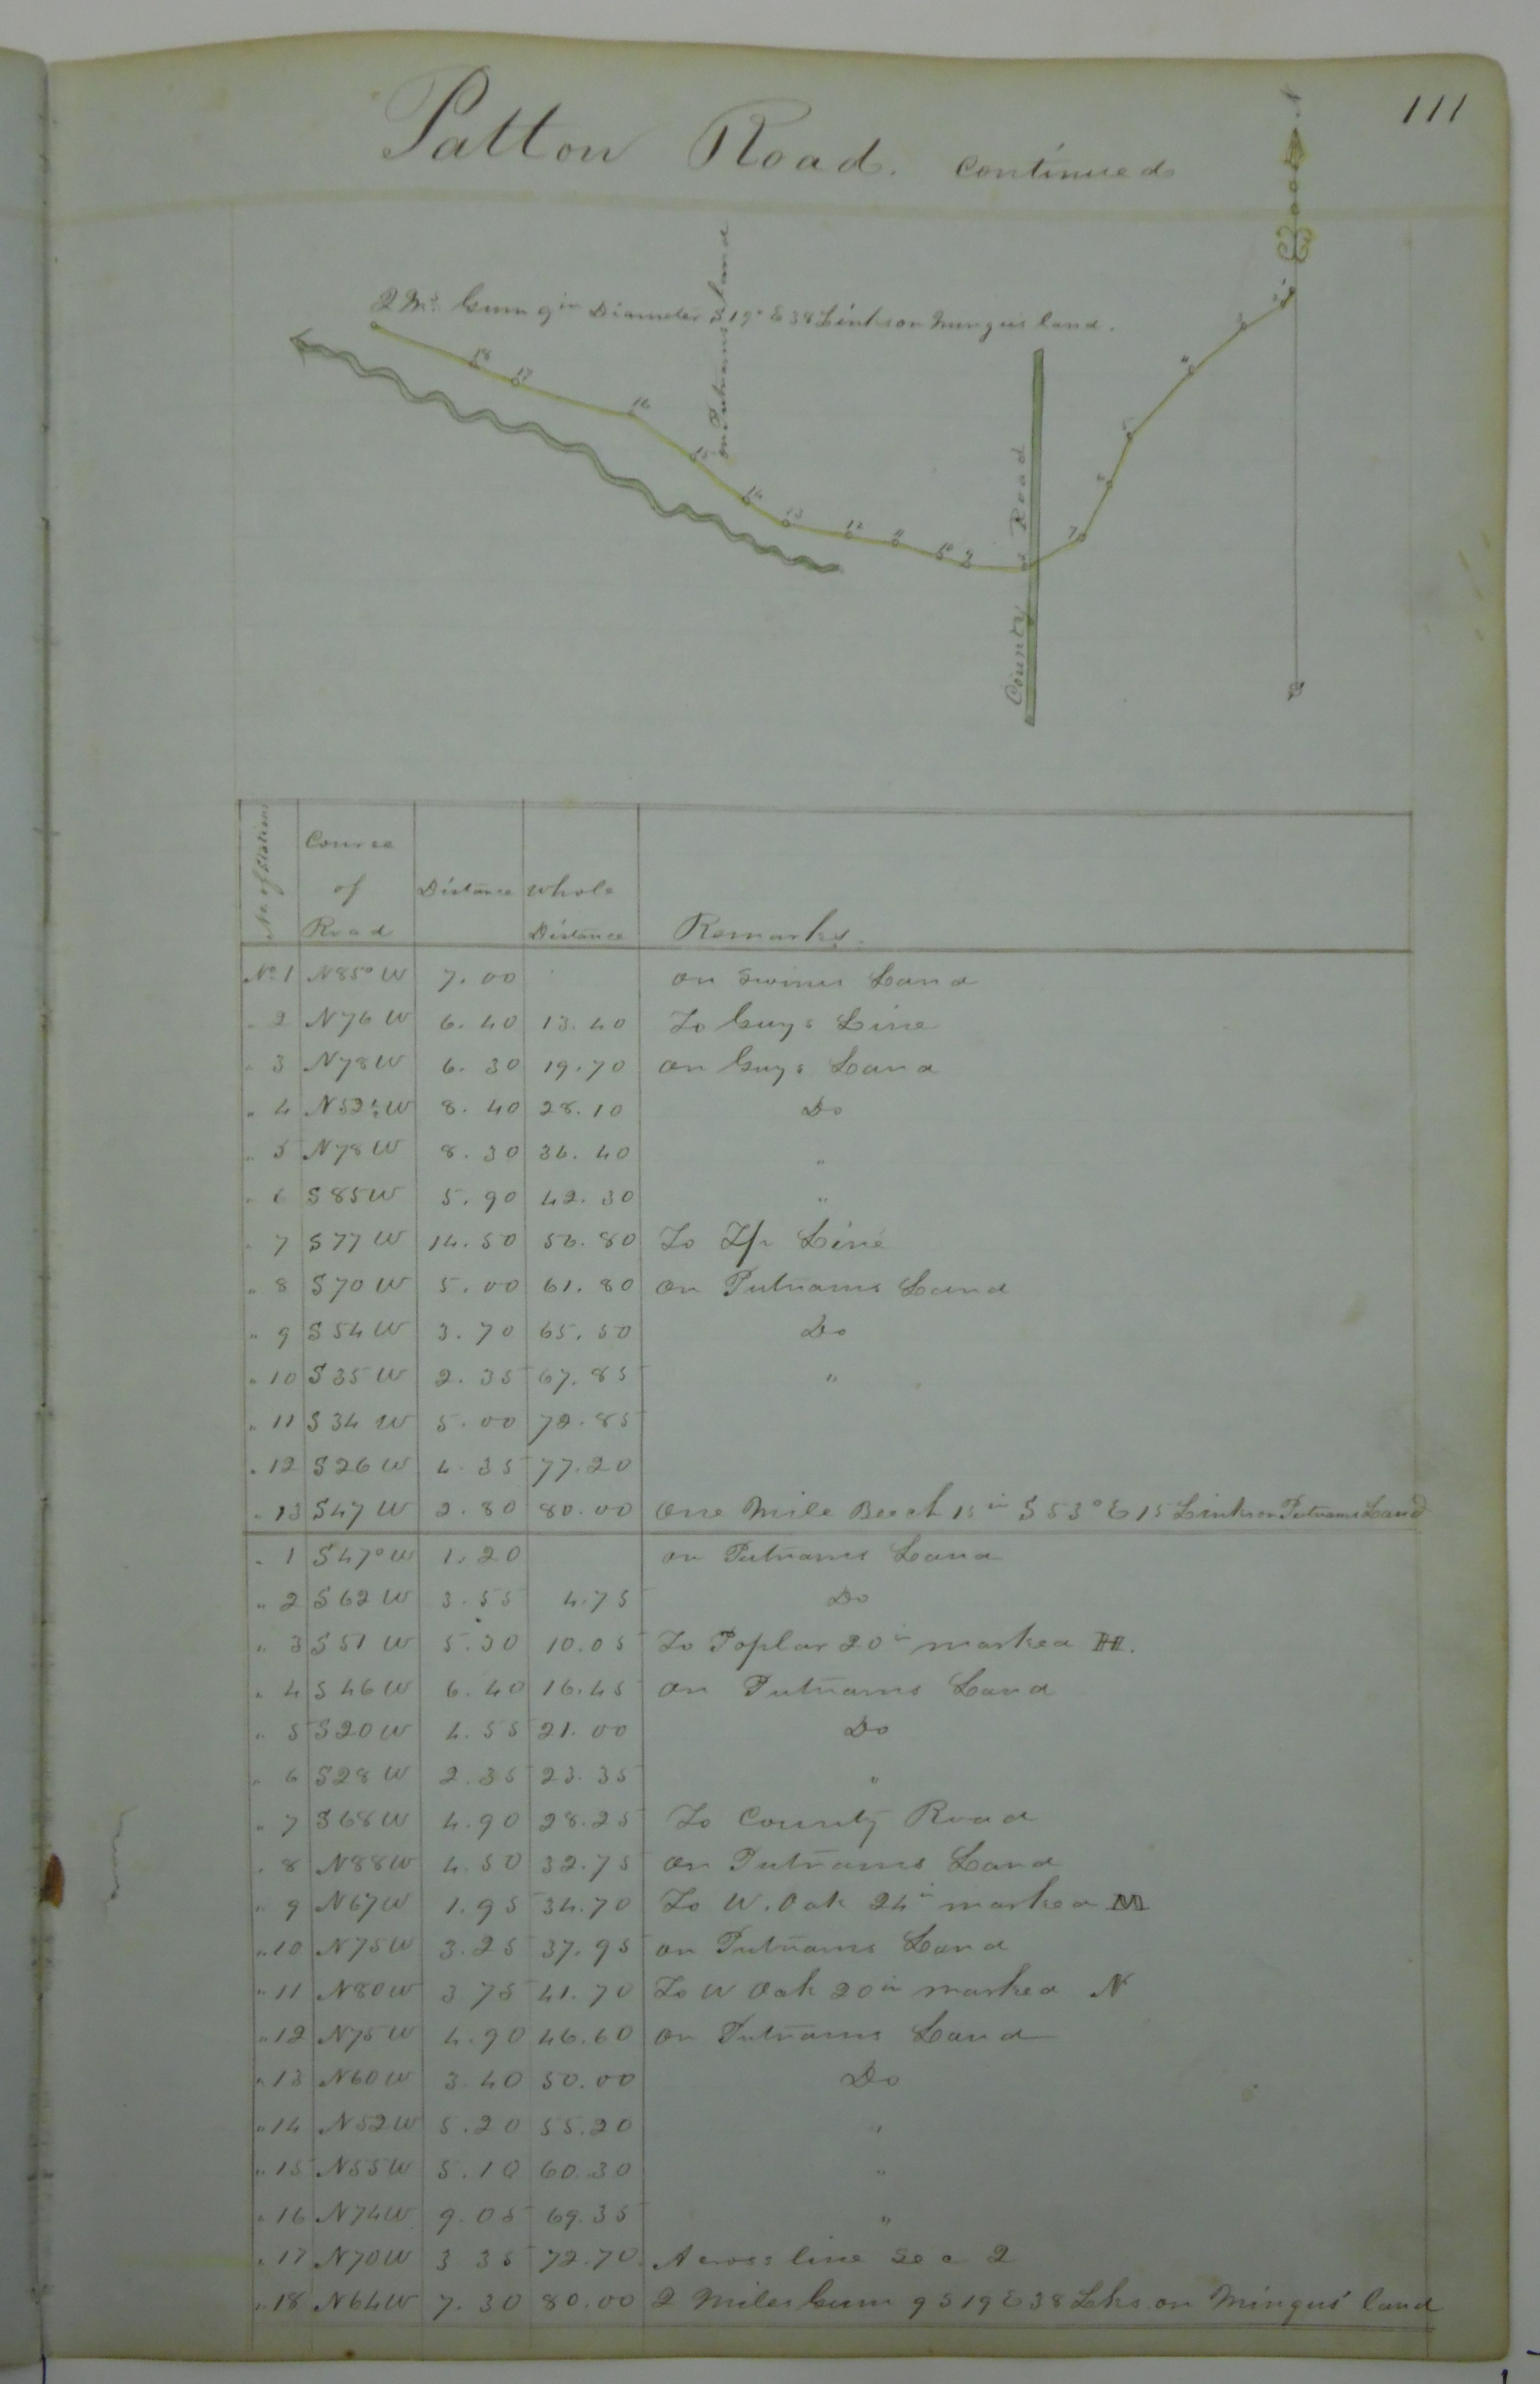 111
Patton Road. Continued
2 Ms. Gum 9 in Diameter S 19° E 38 Links on Mingus land.
on Putnams land
18 17 16 15 14 13 12 11 10 9 8 7 6 5 4 3 2
County Road
No. of Station | Course of Road | Distance | Whole Distance | Remarks.
No 1 N85° W 7.00 on Land
" 2 N76 W 6.40 13.40 To Guys Line
" 3 N78 W 6.30 19.70 on Guys Land
" 4 N52½ W 8.40 28.10 Do
" 5 N78 W 8.30 36.40 "
" 6 S85 W 5.90 42.30 "
" 7 S77 W 14.50 56.80 To Line
" 8 S70 W 5.00 61.80 on Putnams Land
" 9 S54 W 3.70 65.50 Do
" 10 S35 W 2.35 67.85 "
" 11 S34 W 5.00 72.85
" 12 S26 W 4.35 77.20
" 13 S47 W 2.80 80.00 One Mile Beech 15 in S 53° E 15 Links on Putnams Land
" 1 S47° W 1.20 on Putnams Land
" 2 S62 W 3.55 4.75 Do
" 3 S51 W 5.30 10.05 To Poplar 20 in marked H.
" 4 S46 W 6.40 16.45 on Putnams Land
" 5 S20 W 4.55 21.00 Do
" 6 S28 W 2.35 23.35 "
" 7 S68 W 4.90 28.25 To County Road
" 8 N88 W 4.50 32.75 on Putnams Land
" 9 N67 W 1.95 34.70 To W. Oak 24 in marked M
" 10 N75 W 3.25 37.95 on Putnams Land
" 11 N80 W 3.75 41.70 To W Oak 20 in marked N
" 12 N75 W 4.90 46.60 on Putnams Land
" 13 N60 W 3.40 50.00 Do
" 14 N52 W 5.20 55.20 "
" 15 N55 W 5.10 60.30 "
" 16 N74 W 9.05 69.35 "
" 17 N70 W 3.35 72.70 Across line Sec 2
" 18 N64 W 7.30 80.00 2 Miles Gum 9 S 19 E 38 Lks. on Mingus' land